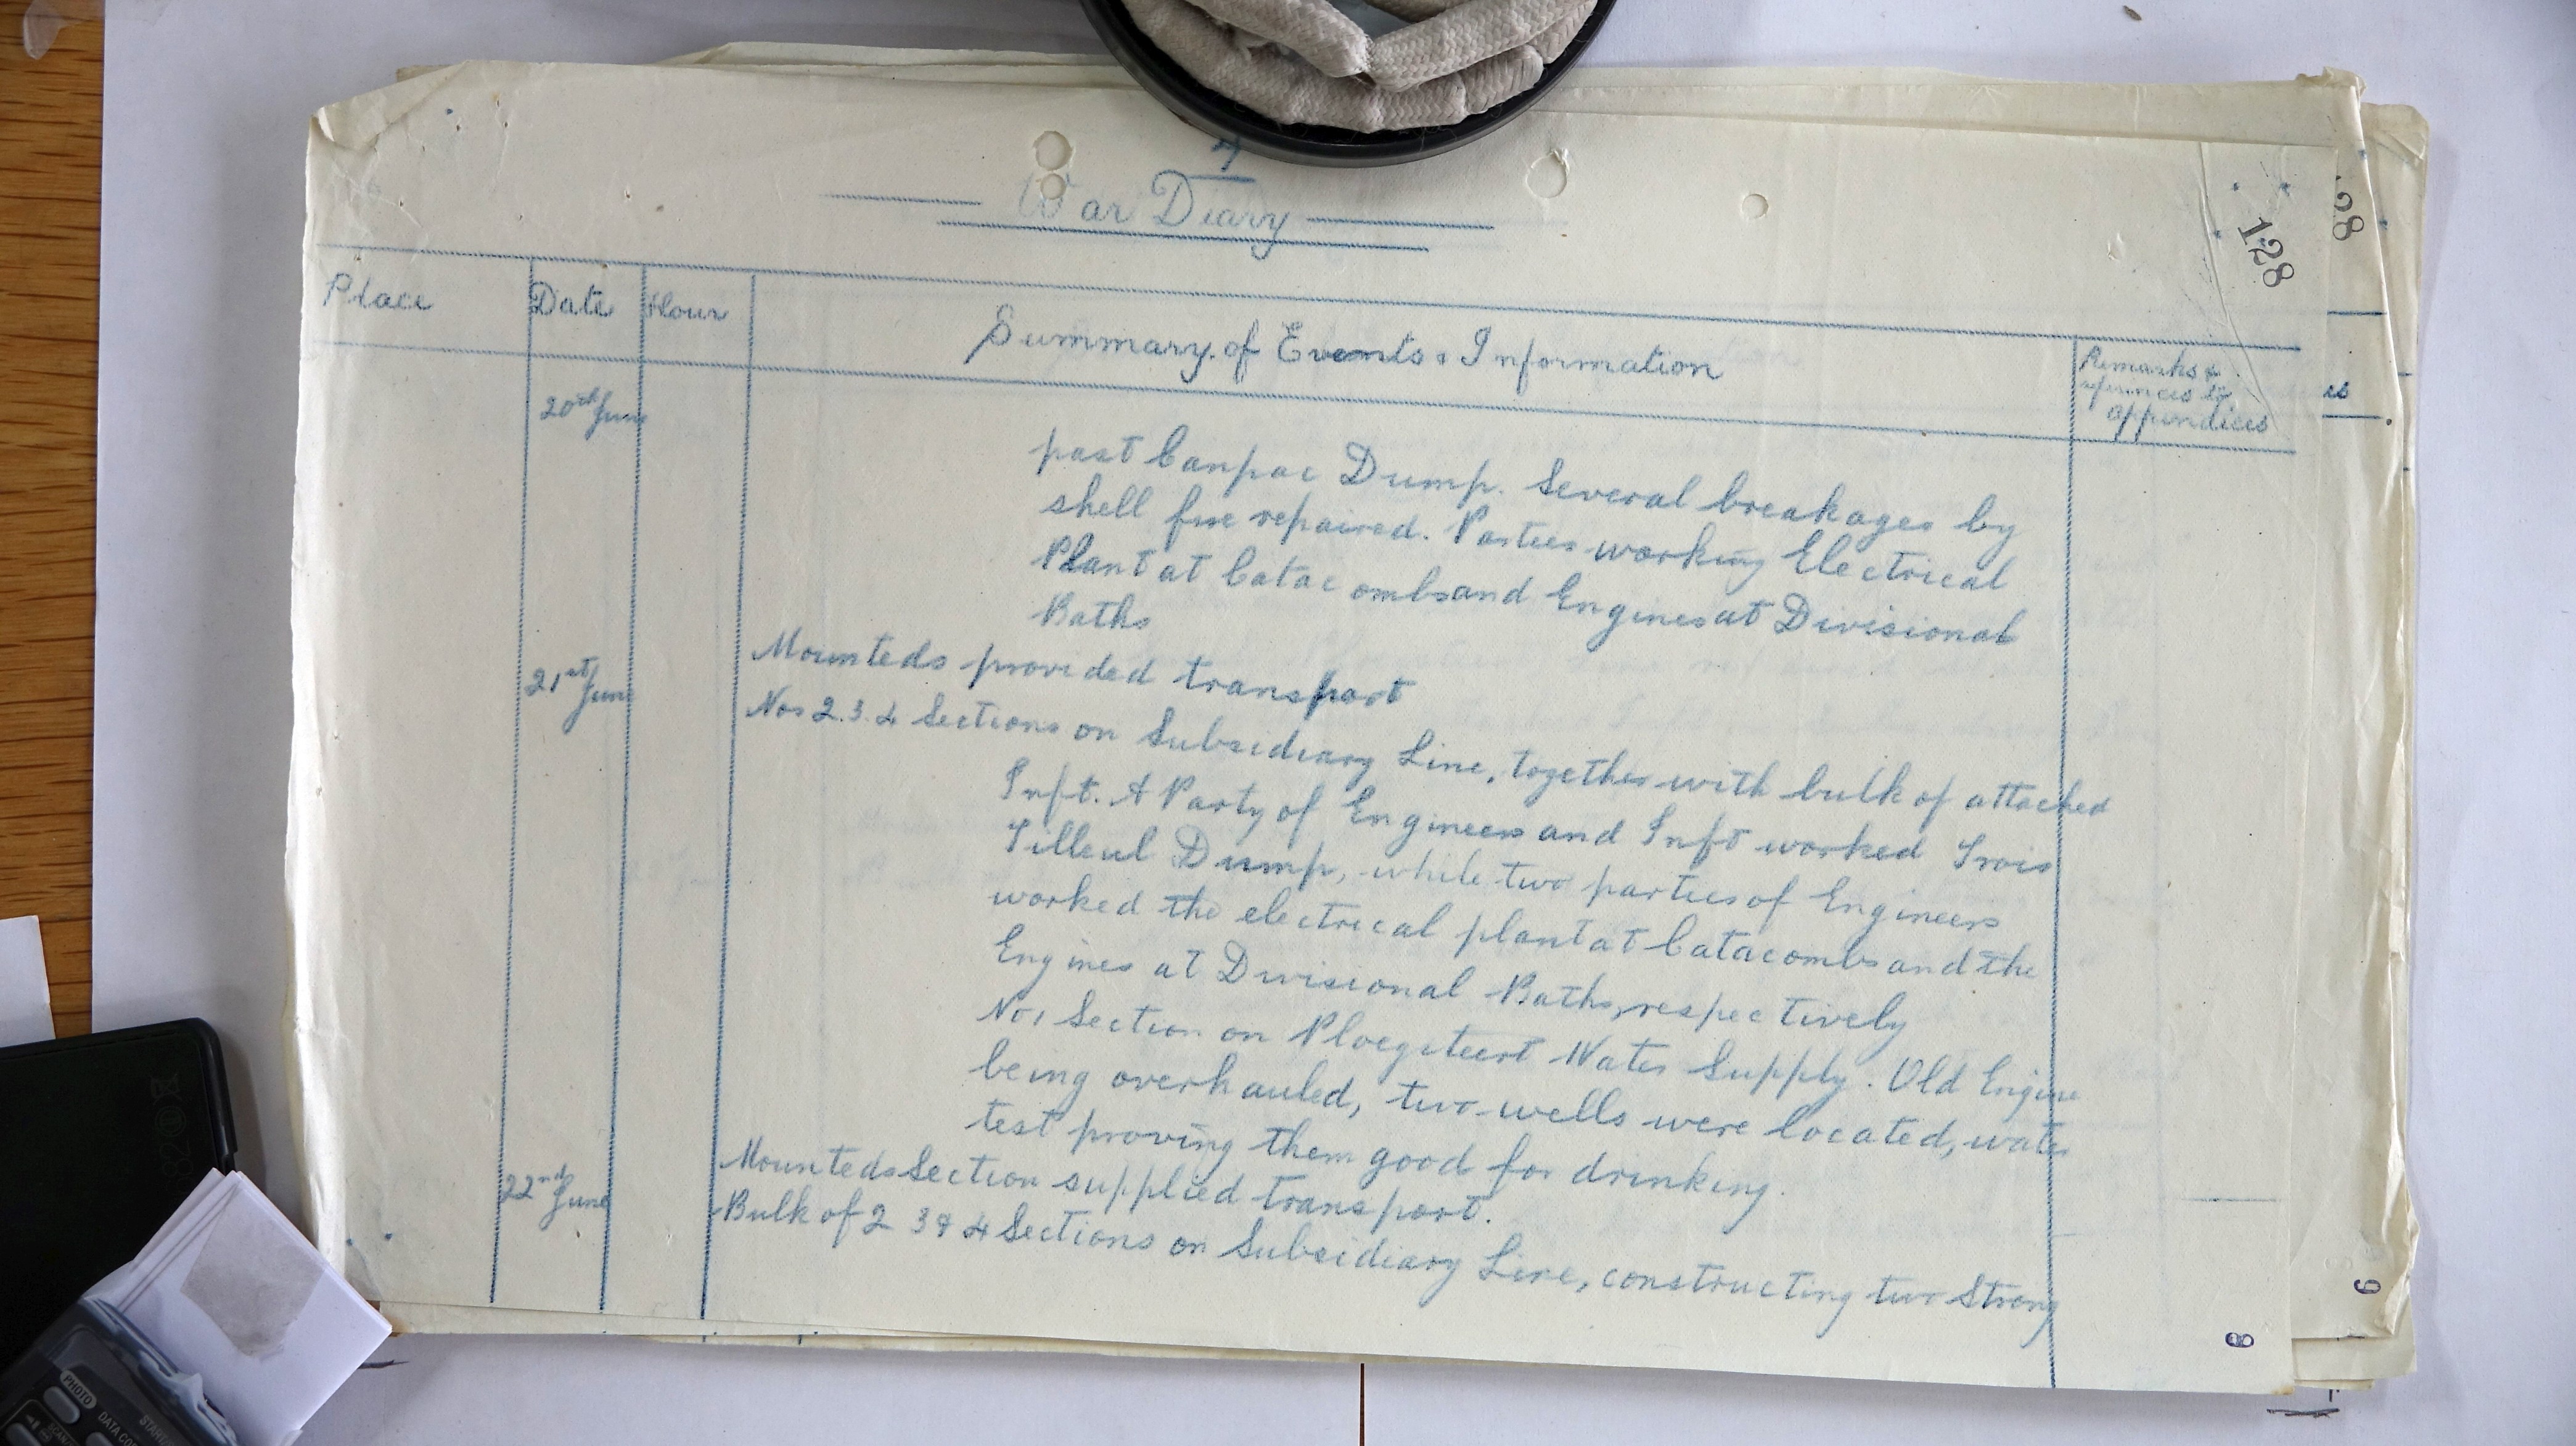 7
War Diary
128
28
Place Date Hour Summary of Events & Information Remarks & references to appendices
es
20th June past Canpac Dump. Several breakages by
shell fire repaired. Parties working Electrical
Plant at Catacombs and Engines at Divisional
Baths
Mounteds provided transport
21st June Nos 2.3.4 Sections on Subsidiary Line, together with bulk of attached
Inft. A Party of Engineers and Inft worked Trois
Tilleul Dump, while two parties of Engineers
worked the electrical plant at Catacombs and the
Engines at Divisional Baths, respectively
No 1 Section on Ploegsteert Water Supply. Old Engine
being overhauled, two wells were located, water
test proving them good for drinking.
Mounteds Section supplied transport.
22nd June Bulk of 2 3 & 4 Sections on Subsidiary Line, constructing two Strong
8
9
PHOTO